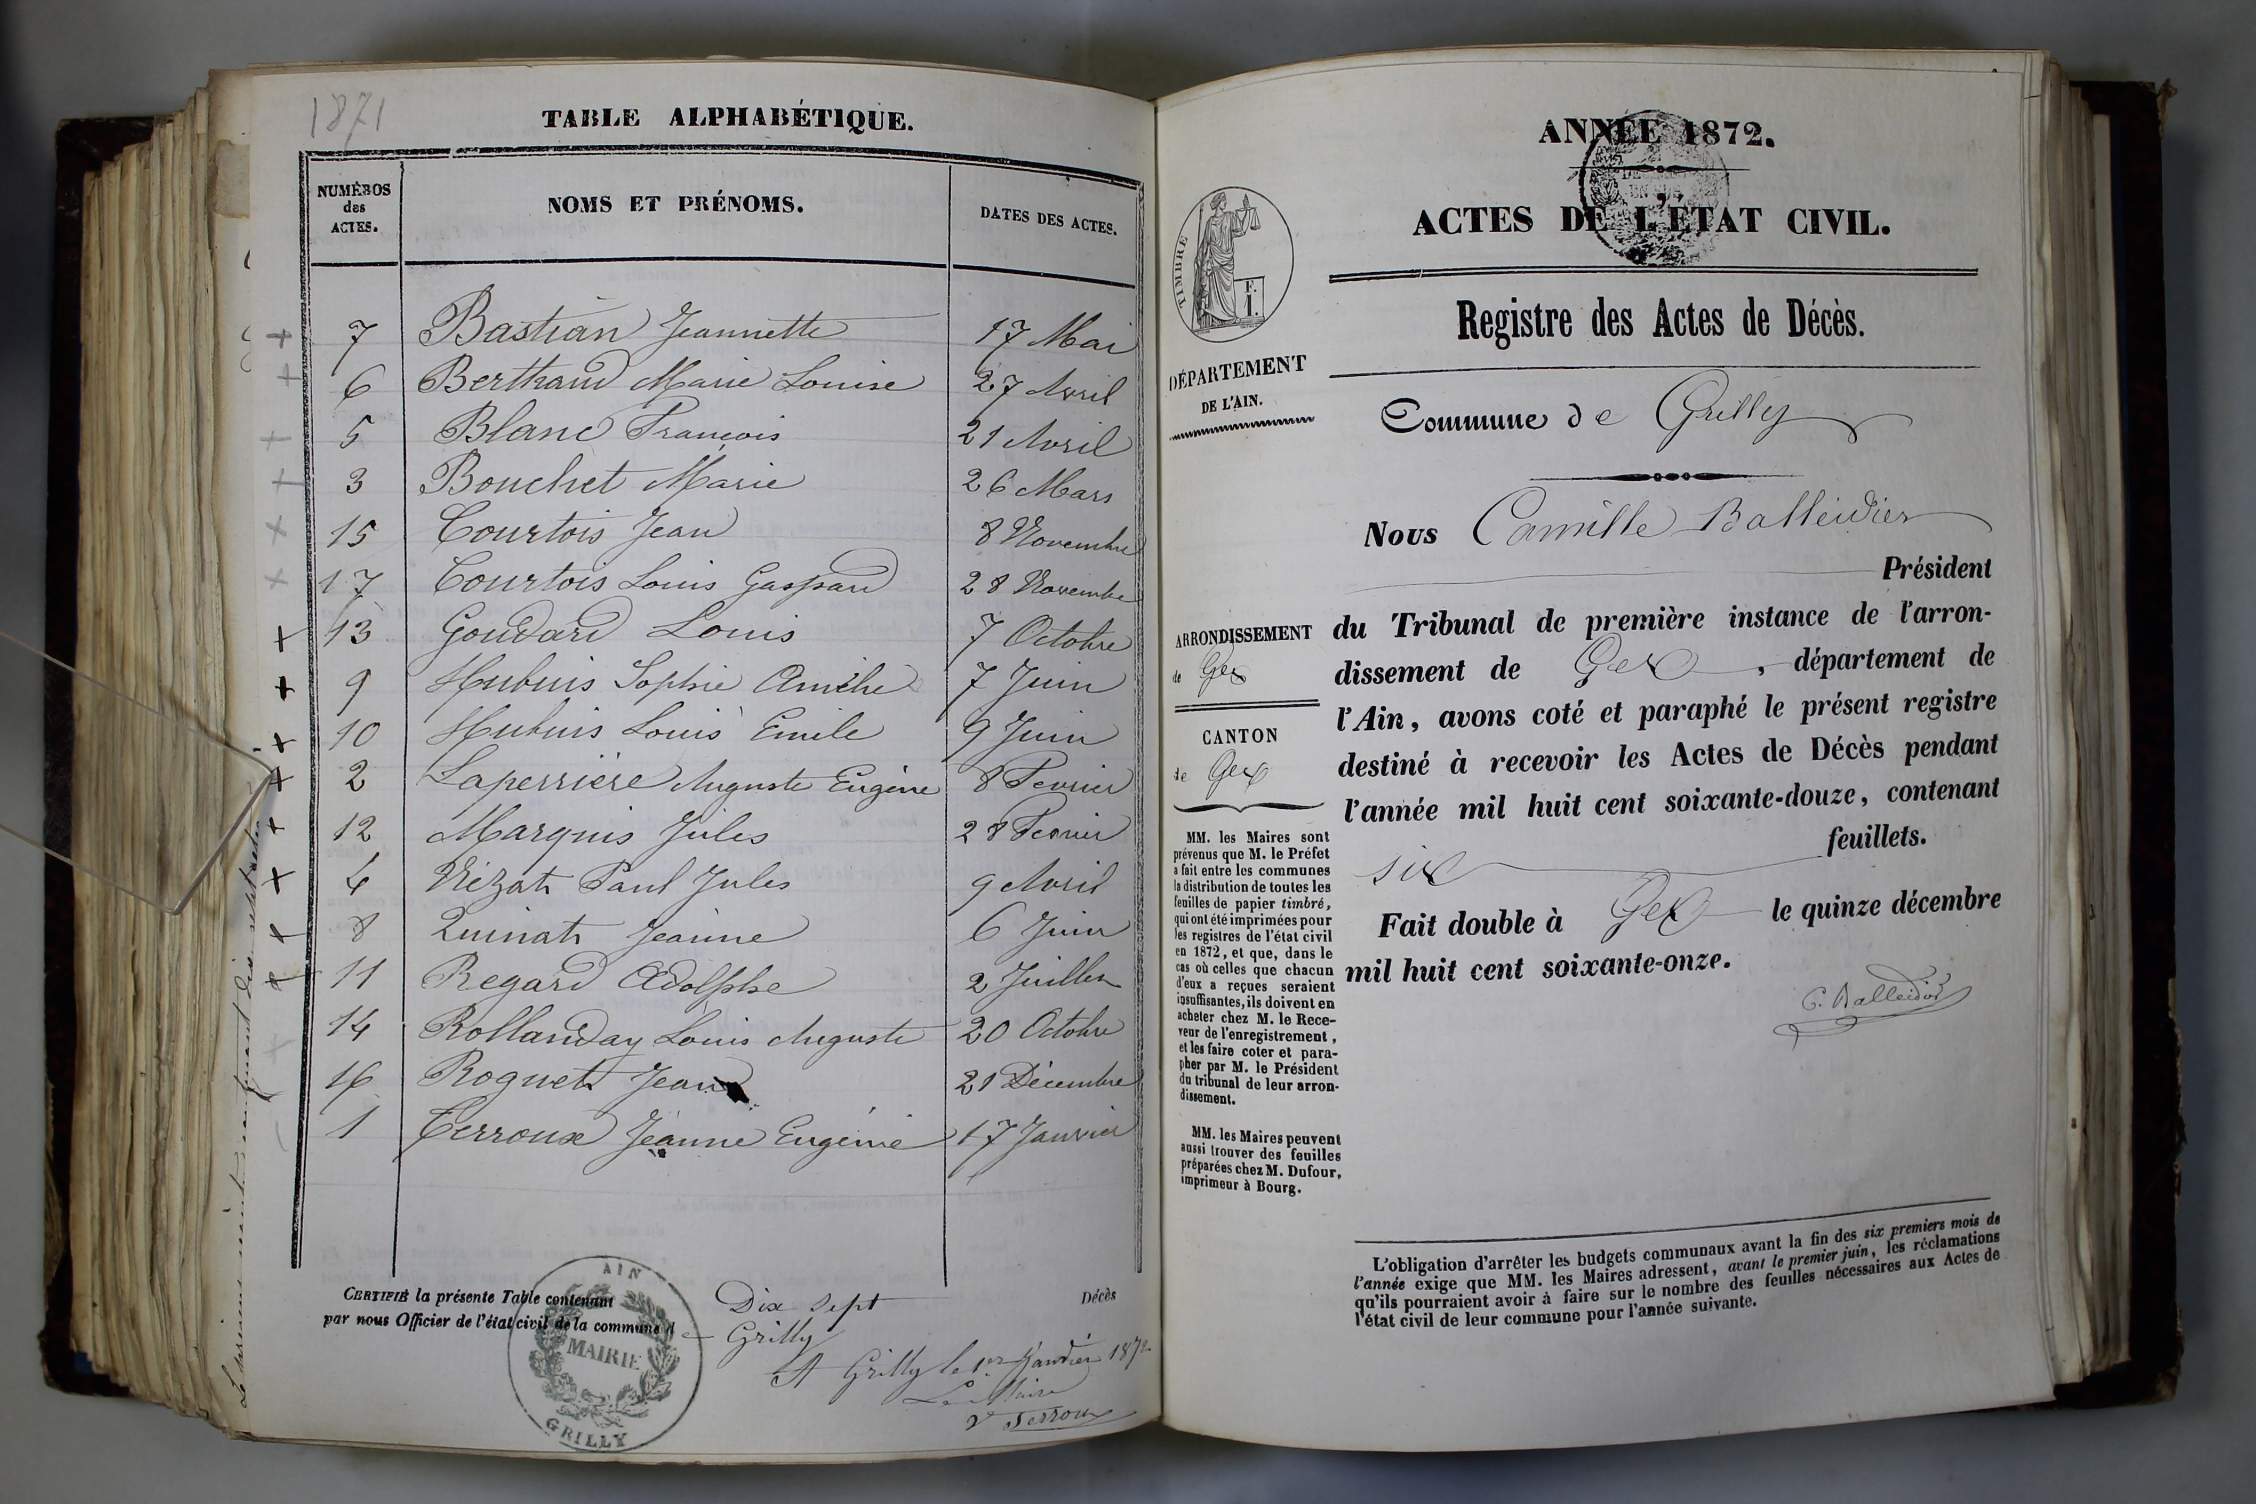 1871
TABLE ALPHABÉTIQUE.
NUMÉROS
des
ACTES.
NOMS ET PRÉNOMS.
DATES DES ACTES.
7 Bastian Jeannette 17 Mai
6 Berthaud Marie Louise 27 Avril
5 Blanc François 21 Avril
3 Bouchet Marie 26 Mars
15 Courtois Jean 8 Novembre
17 Courtois Louis Gaspard 28 Novembre
13 Goudard Louis 7 Octobre
9 Hubuis Sophie Amélie 7 Juin
10 Hubuis Louis Emile 9 Juin
2 Laperrière Auguste Eugène 8 Fevrier
12 Marquis Jules 28 Fevrier
4 Nézat Paul Jules 9 Avril
8 Quinat Jeanne 6 Juin
11 Regard Adolphe 2 Juillet
14 Rollanday Louis Auguste 20 Octobre
16 Roguet Jean 21 Décembre
1 Terroux Jeanne Eugénie 17 Janvier
CERTIFIÉ la présente Table contenant Dix Sept Décès
par nous Officier de l'état civil de la commune de Grilly
A Grilly le 1er Janvier 1872
Le Maire
Terroux
AIN
MAIRIE
GRILLY
ANNÉE 1872.
ACTES DE L'ÉTAT CIVIL.
Registre des Actes de Décès.
TIMBRE
F.
I.
DÉPARTEMENT
DE L'AIN.
Commune de Grilly
Nous Camille Balleidier
Président
du Tribunal de première instance de l'arron-
dissement de Gex, département de
l'Ain, avons coté et paraphé le présent registre
destiné à recevoir les Actes de Décès pendant
l'année mil huit cent soixante-douze, contenant
six feuillets.
Fait double à Gex le quinze décembre
mil huit cent soixante-onze.
C. Balleidier
ARRONDISSEMENT
de Gex
CANTON
de Gex
MM. les Maires sont
prévenus que M. le Préfet
a fait entre les communes
la distribution de toutes les
feuilles de papier timbré,
qui ont été imprimées pour
les registres de l'état civil
en 1872, et que, dans le
cas où celles que chacun
d'eux a reçues seraient
insuffisantes, ils doivent en
acheter chez M. le Rece-
veur de l'enregistrement,
et les faire coter et para-
pher par M. le Président
du tribunal de leur arron-
dissement.
MM. les Maires peuvent
aussi trouver des feuilles
préparées chez M. Dufour,
imprimeur à Bourg.
L'obligation d'arrêter les budgets communaux avant la fin des six premiers mois de
l'année exige que MM. les Maires adressent, avant le premier juin, les réclamations
qu'ils pourraient avoir à faire sur le nombre des feuilles nécessaires aux Actes de
l'état civil de leur commune pour l'année suivante.